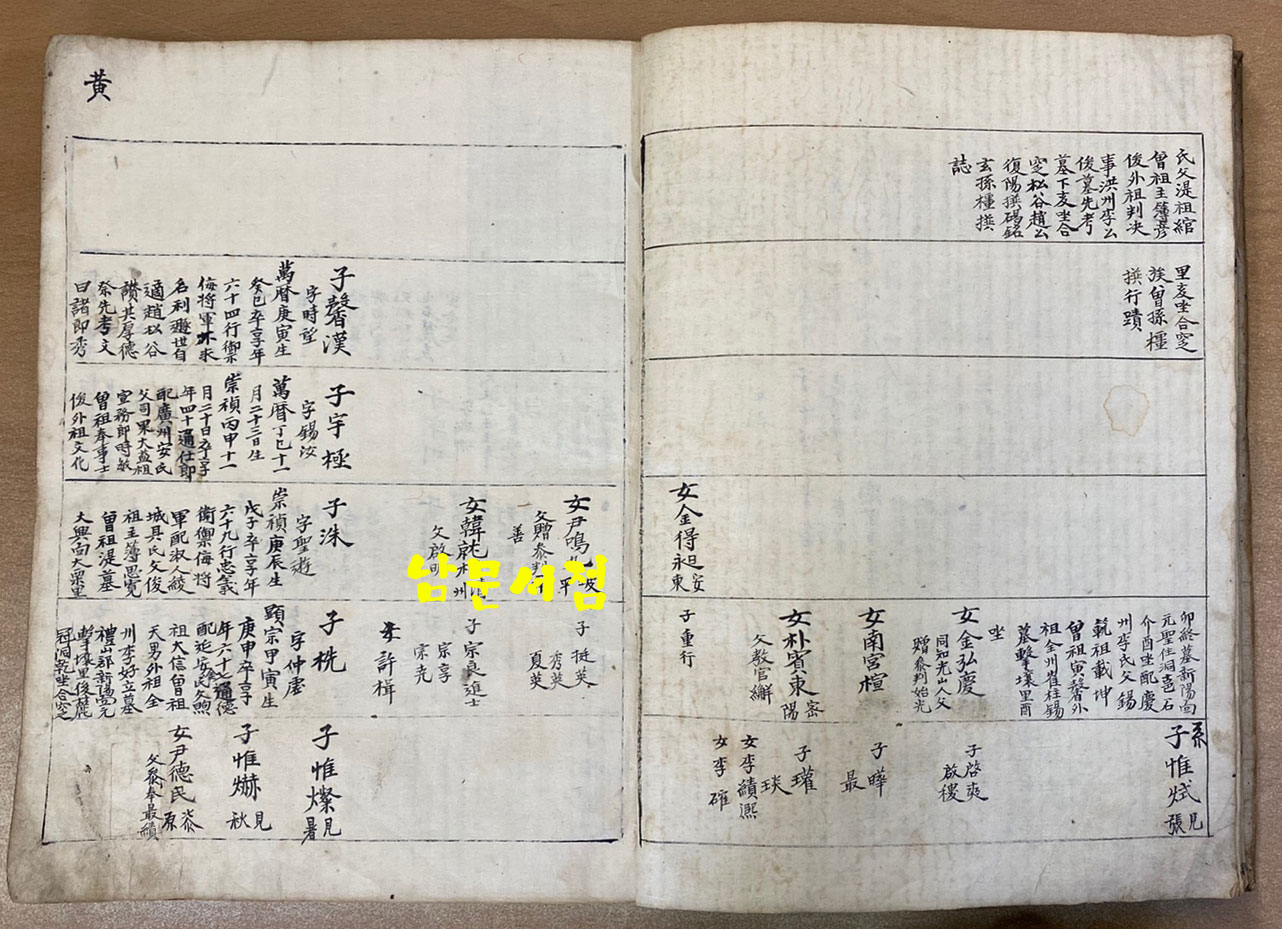 氏父湜祖綰
曾祖主簿彦
後外祖判决
事洪州李公
後墓先考
墓下亥坐合
窆松谷趙公
復陽撰碣銘
玄孫橿撰
誌
里亥坐合窆
族曾孫橿
撰行蹟
女金得永
安東
卯終墓新陽面
元聖住洞艺石
介酉坐配慶
州李氏父錫
祖載坤
曾祖寅馨外
祖全州崔柱錫
墓擊壤里酉
坐
女金弘慶
同知光山人父
贈叅判始光
女南宮楦
女朴賓東
密陽
父教官
子重行
系
子惟烒
見張
子啓奭
啟稷
子曄
最
子瓘
琰
女李績熙
女李確
黃
子馨漢
字時望
萬曆庚寅生
癸巳卒享年
六十四行禦
侮將軍不求
名利遯世自
適趙松谷
讚其厚德
祭先考文
曰諸郎秀
子宇極
字錫汝
萬曆丁巳十一
月二十三日生
崇禎丙申十一
月二十日卒享
年四十通仕郎
配廣州安氏
父司果大益祖
宣務郎時敏
曾祖奉事士
俊外祖文化
子洙
字聖遊
崇禎庚辰生
戊子卒享年
六十九行忠義
衛禦侮將
軍配淑人綾
城具氏父俊
祖主簿思寬
曾祖湜墓
大興面大栗里
女韓就
父啟明
州
女尹鳴
坡平
父贈叅判
善
子桄
字仲虛
顯宗甲寅生
庚申卒享
年六十七通德
配延安氏父煦
祖大信曾祖
天男外祖全
州李好立墓
禮山郡新陽面元
擊壤里後麓
冠洞乾坐合窆
女許楫
子宗良進士
宗享
宗尭
子挺英
秀英
夏英
子惟燦
見暑
子惟爀
見秋
女尹德民
柒原
父叅奉最績
남문서점